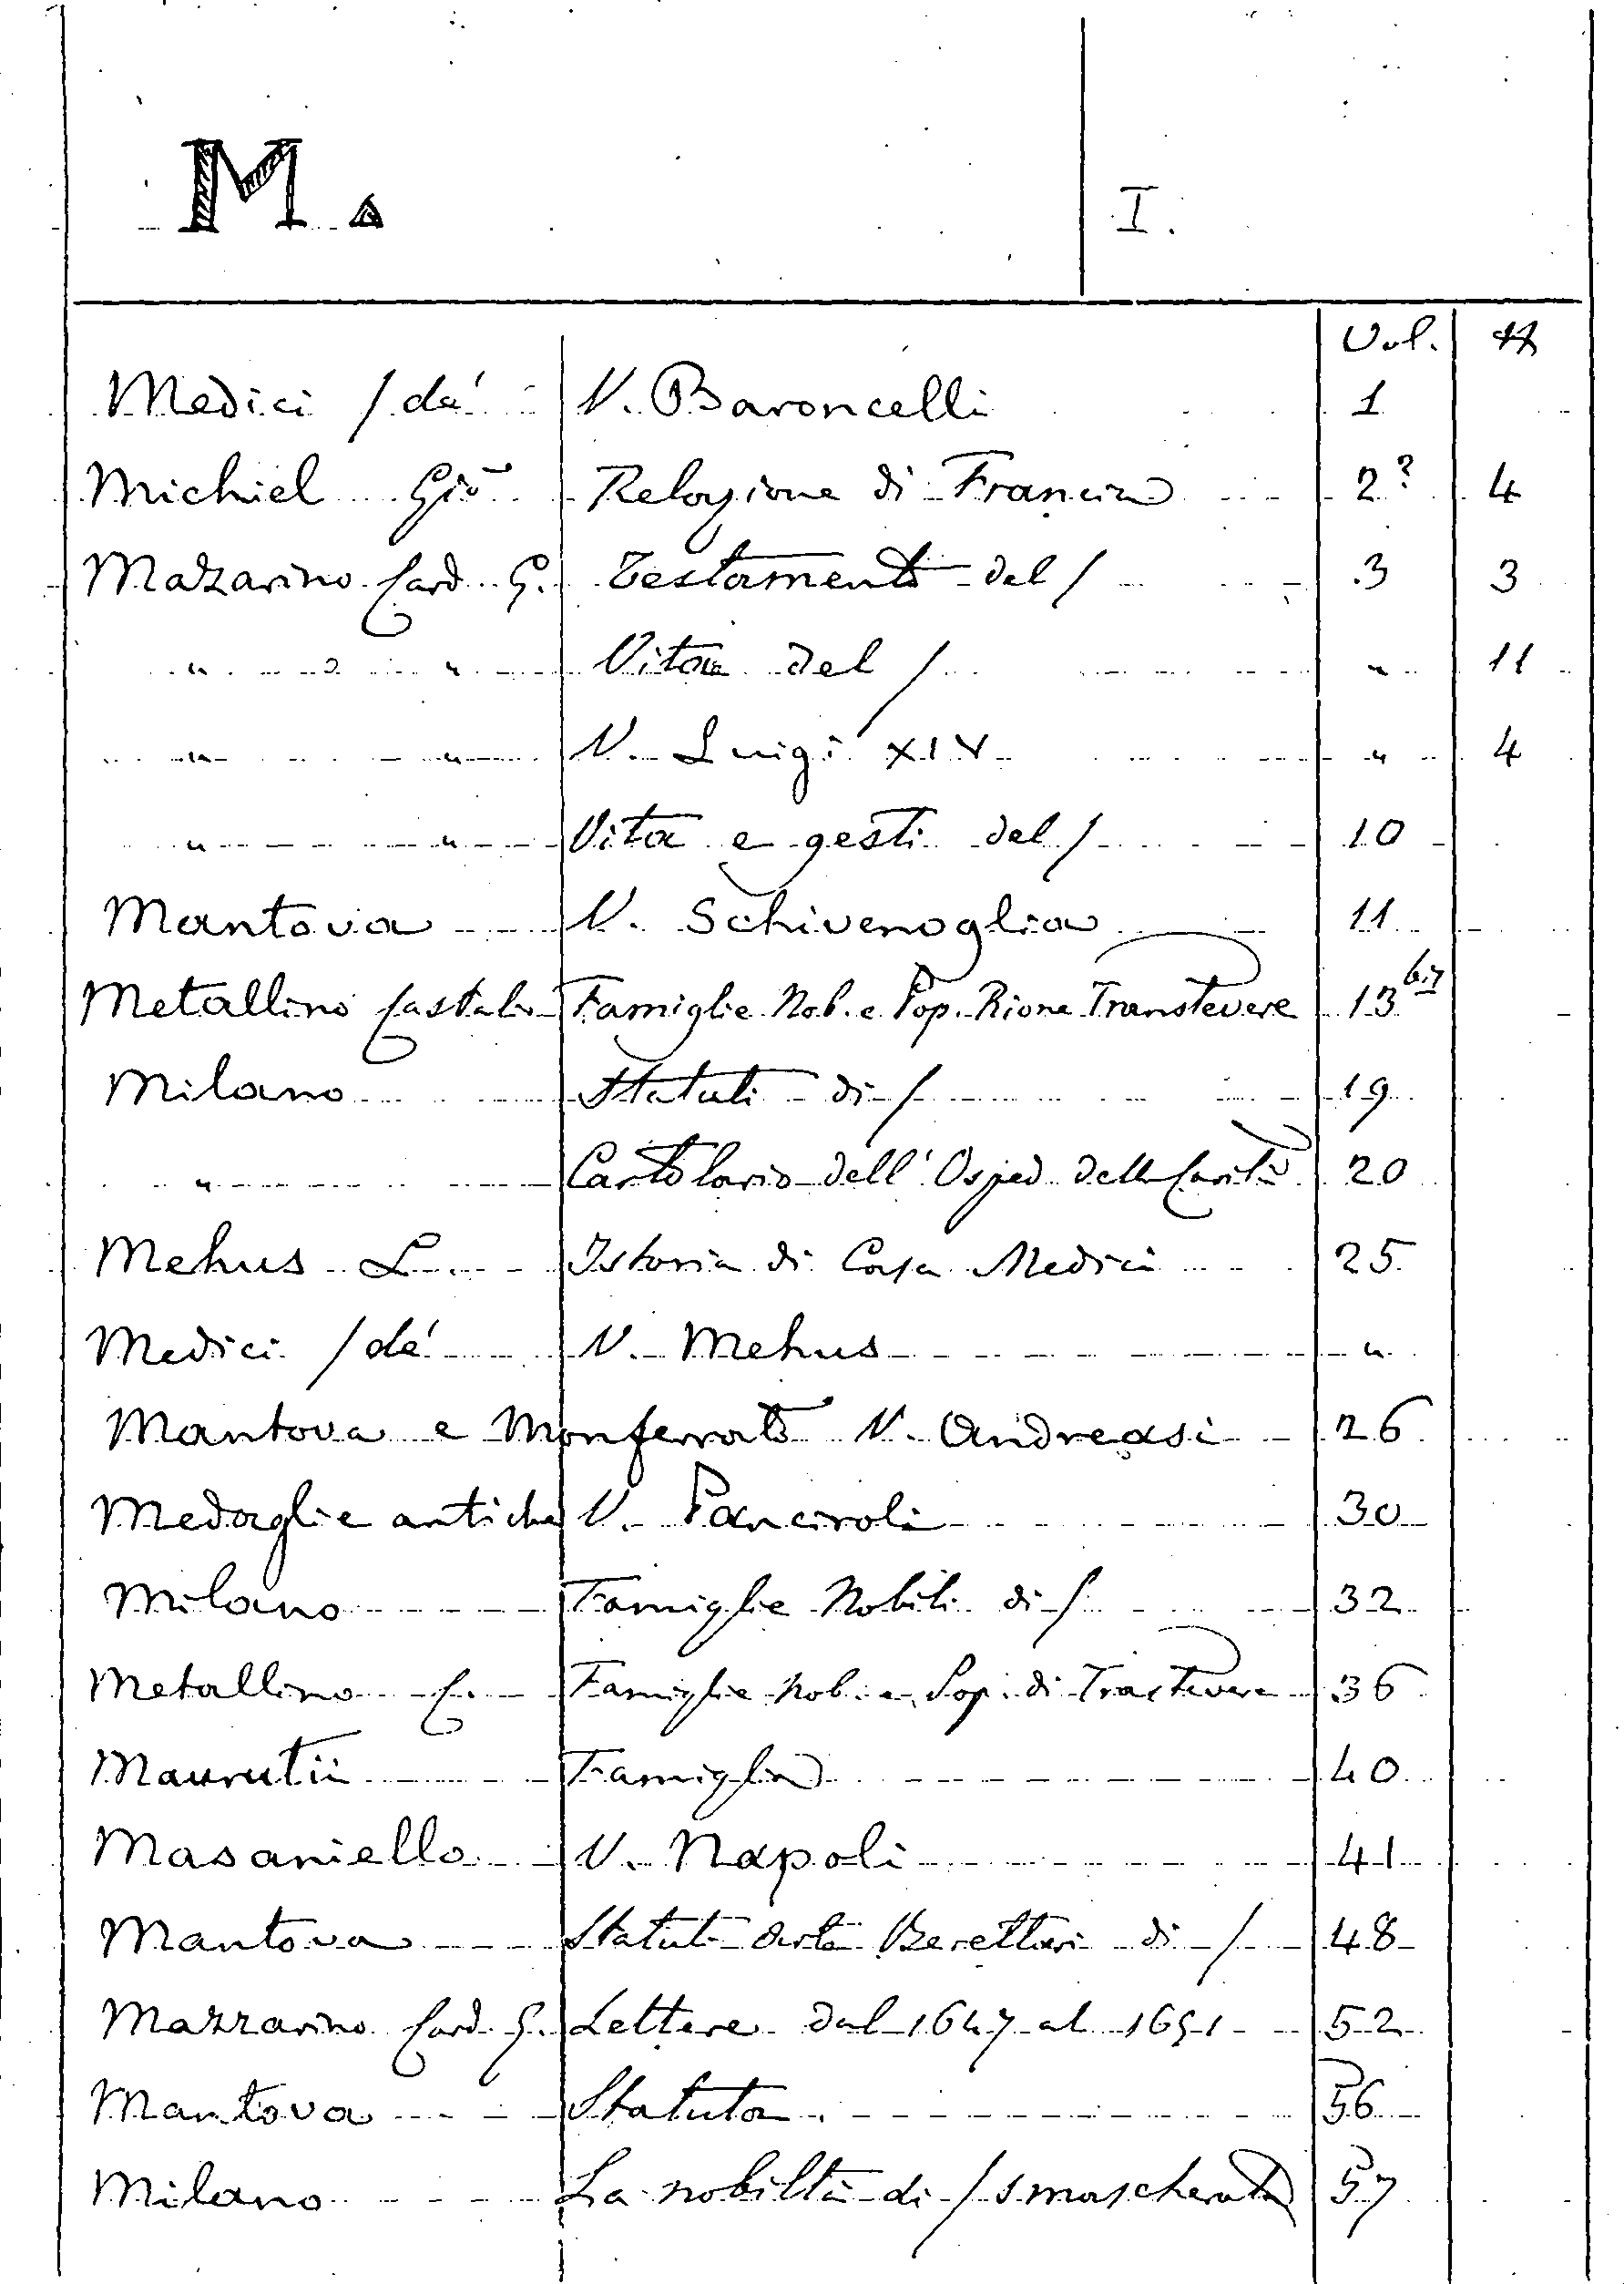 M.
I.
Vol. #
Medici / dé V. Baroncelli 1
Michiel Giō Relazione di Francia 2? 4
Mazarino Card. G. Testamento del / 3 3
" " " Vita del / " 11
" " V. Luigi XIV " 4
" " Vita e gesti del / 10
Mantova V. Schivenoglia 11
Metallino Castalio Famiglie Nob. e Pop. Rione Transtevere 13 bis
Milano Statuti di / 19
" Cartolario dell' Osped. della Carità 20
Mehus L. Istoria di Casa Medici 25
Medici / dé V. Mehus "
Mantova e Monferrato V. Andreasi 26
Medaglie antiche V. Panciroli 30
Milano Famiglie Nobili di / 32
Metallino C. Famiglie Nob. e Pop. di Trastevere 36
Maurutii Famiglia 40
Masaniello V. Napoli 41
Mantova Statuti Arte Berettari di / 48
Mazzarino Card. G. Lettere dal 1647 al 1651 52
Mantova Statuta 56
Milano La nobiltà di / smascherata 57